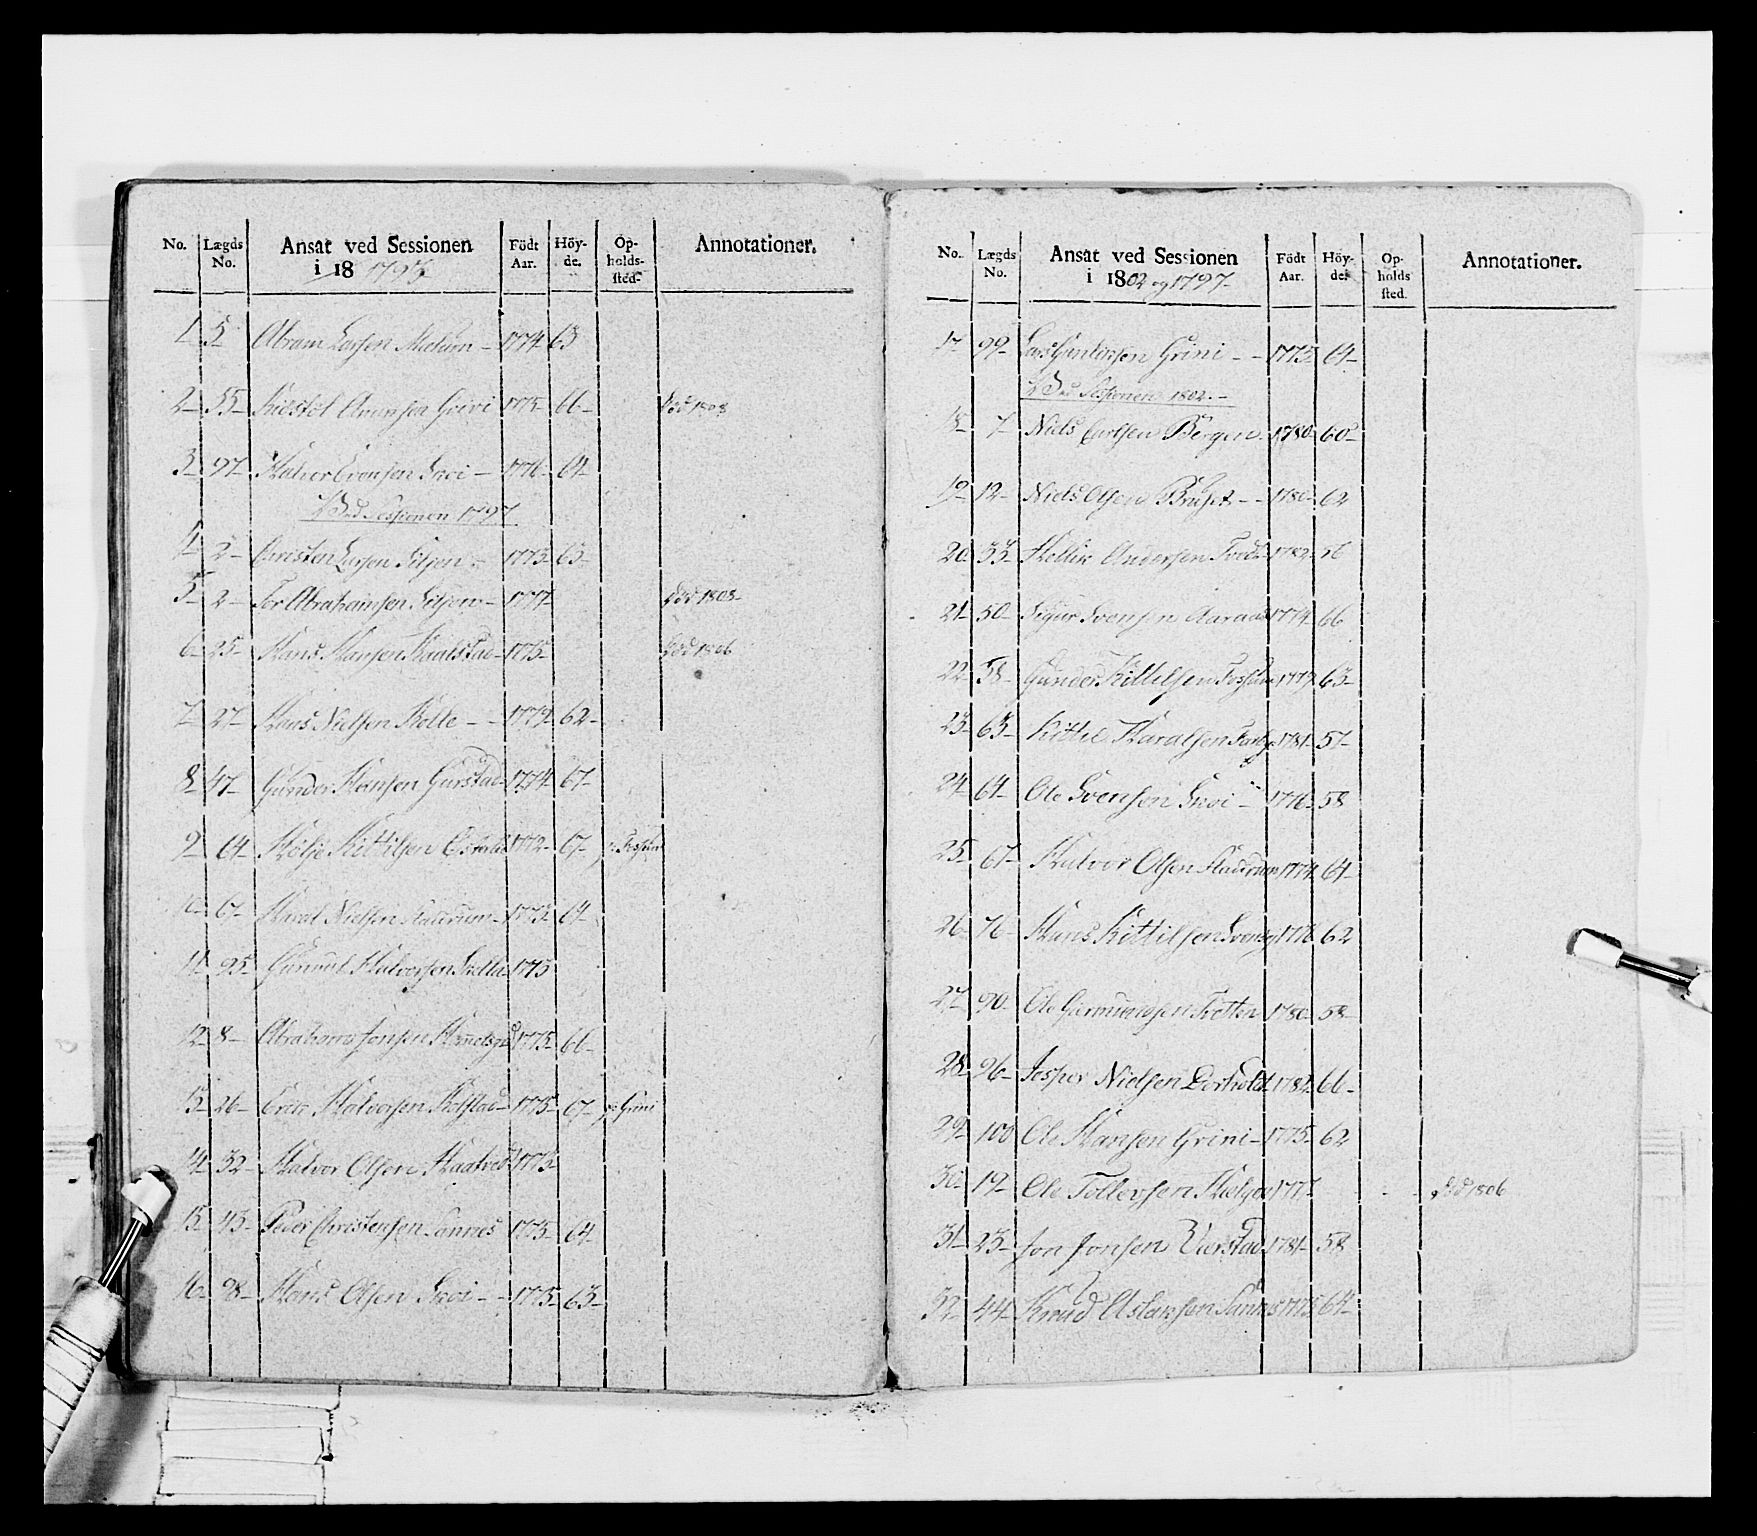 No. Lægds No. Ansat ved Sessionen i 18 1795 Födt Aar. Höyde. Opholdssted. Annotationer.
1 5 Abram Larsen Melum 1774 63
2 55 Kiostol Amunsen Grivi 1775 66 död 1808
3 97 Halvor Evensen Skoi 1776 64
Ved Sessionen 1797
4 2 Christen Larsen Siljen 1775 65
5 2 Tor Abrahamsen Siljen 1777 död 1808
6 25 Hans Hansen Kaalstad 1775 död 1806
7 27 Hans Nielsen Holte 1779 62
8 47 Gunder Hansen Gurstad 1774 67
9 64 Hölje Kittilsen 1772 67
10 67 Haral Nielsen 1773 64
11 95 Gunnul Halvorsen 1775
12 8 Abraham Jonsen 1775 66
13 26 Eric Halvorsen Kolstad 1775 67 Grini
14 32 Halvor Olsen Haatved 1775
15 43 Peder Christensen Sannes 1775 64
16 98 Hans Olsen Skoi 1775 63
No. Lægds No. Ansat ved Sessionen i 1802 og 1797 Födt Aar. Höyde Opholds sted. Annotationer.
17 99 Lars Gunlichsen Grini 1775 64
Ved Sessionen 1802.
18 7 Niels Carlsen Bergen 1780 60
19 12 Niels Olsen Bruset 1780 62
20 33 Andersen 1782
21 50 Sigur Svensen Aaraas 1774 66
22 58 Gunder Kittelsen Fossum 1779 63
23 63 Kittil Haralsen 1781 57
24 64 Ole Svensen Skoi 1776 58
25 67 Halvor Olsen 1774 64
26 76 Hans Kittilsen 1776 62
27 90 Ole Gunmundsen Tveten 1780 58
28 96 Jesper Nielsen Dorholt 1782 66
29 100 Ole Hansen Grini 1775 62
30 19 Ole Tollevsen 1777 död 1806
31 23 Jon Jonsen 1781 58
32 44 Knud Aslaksen Sannes 1775 64